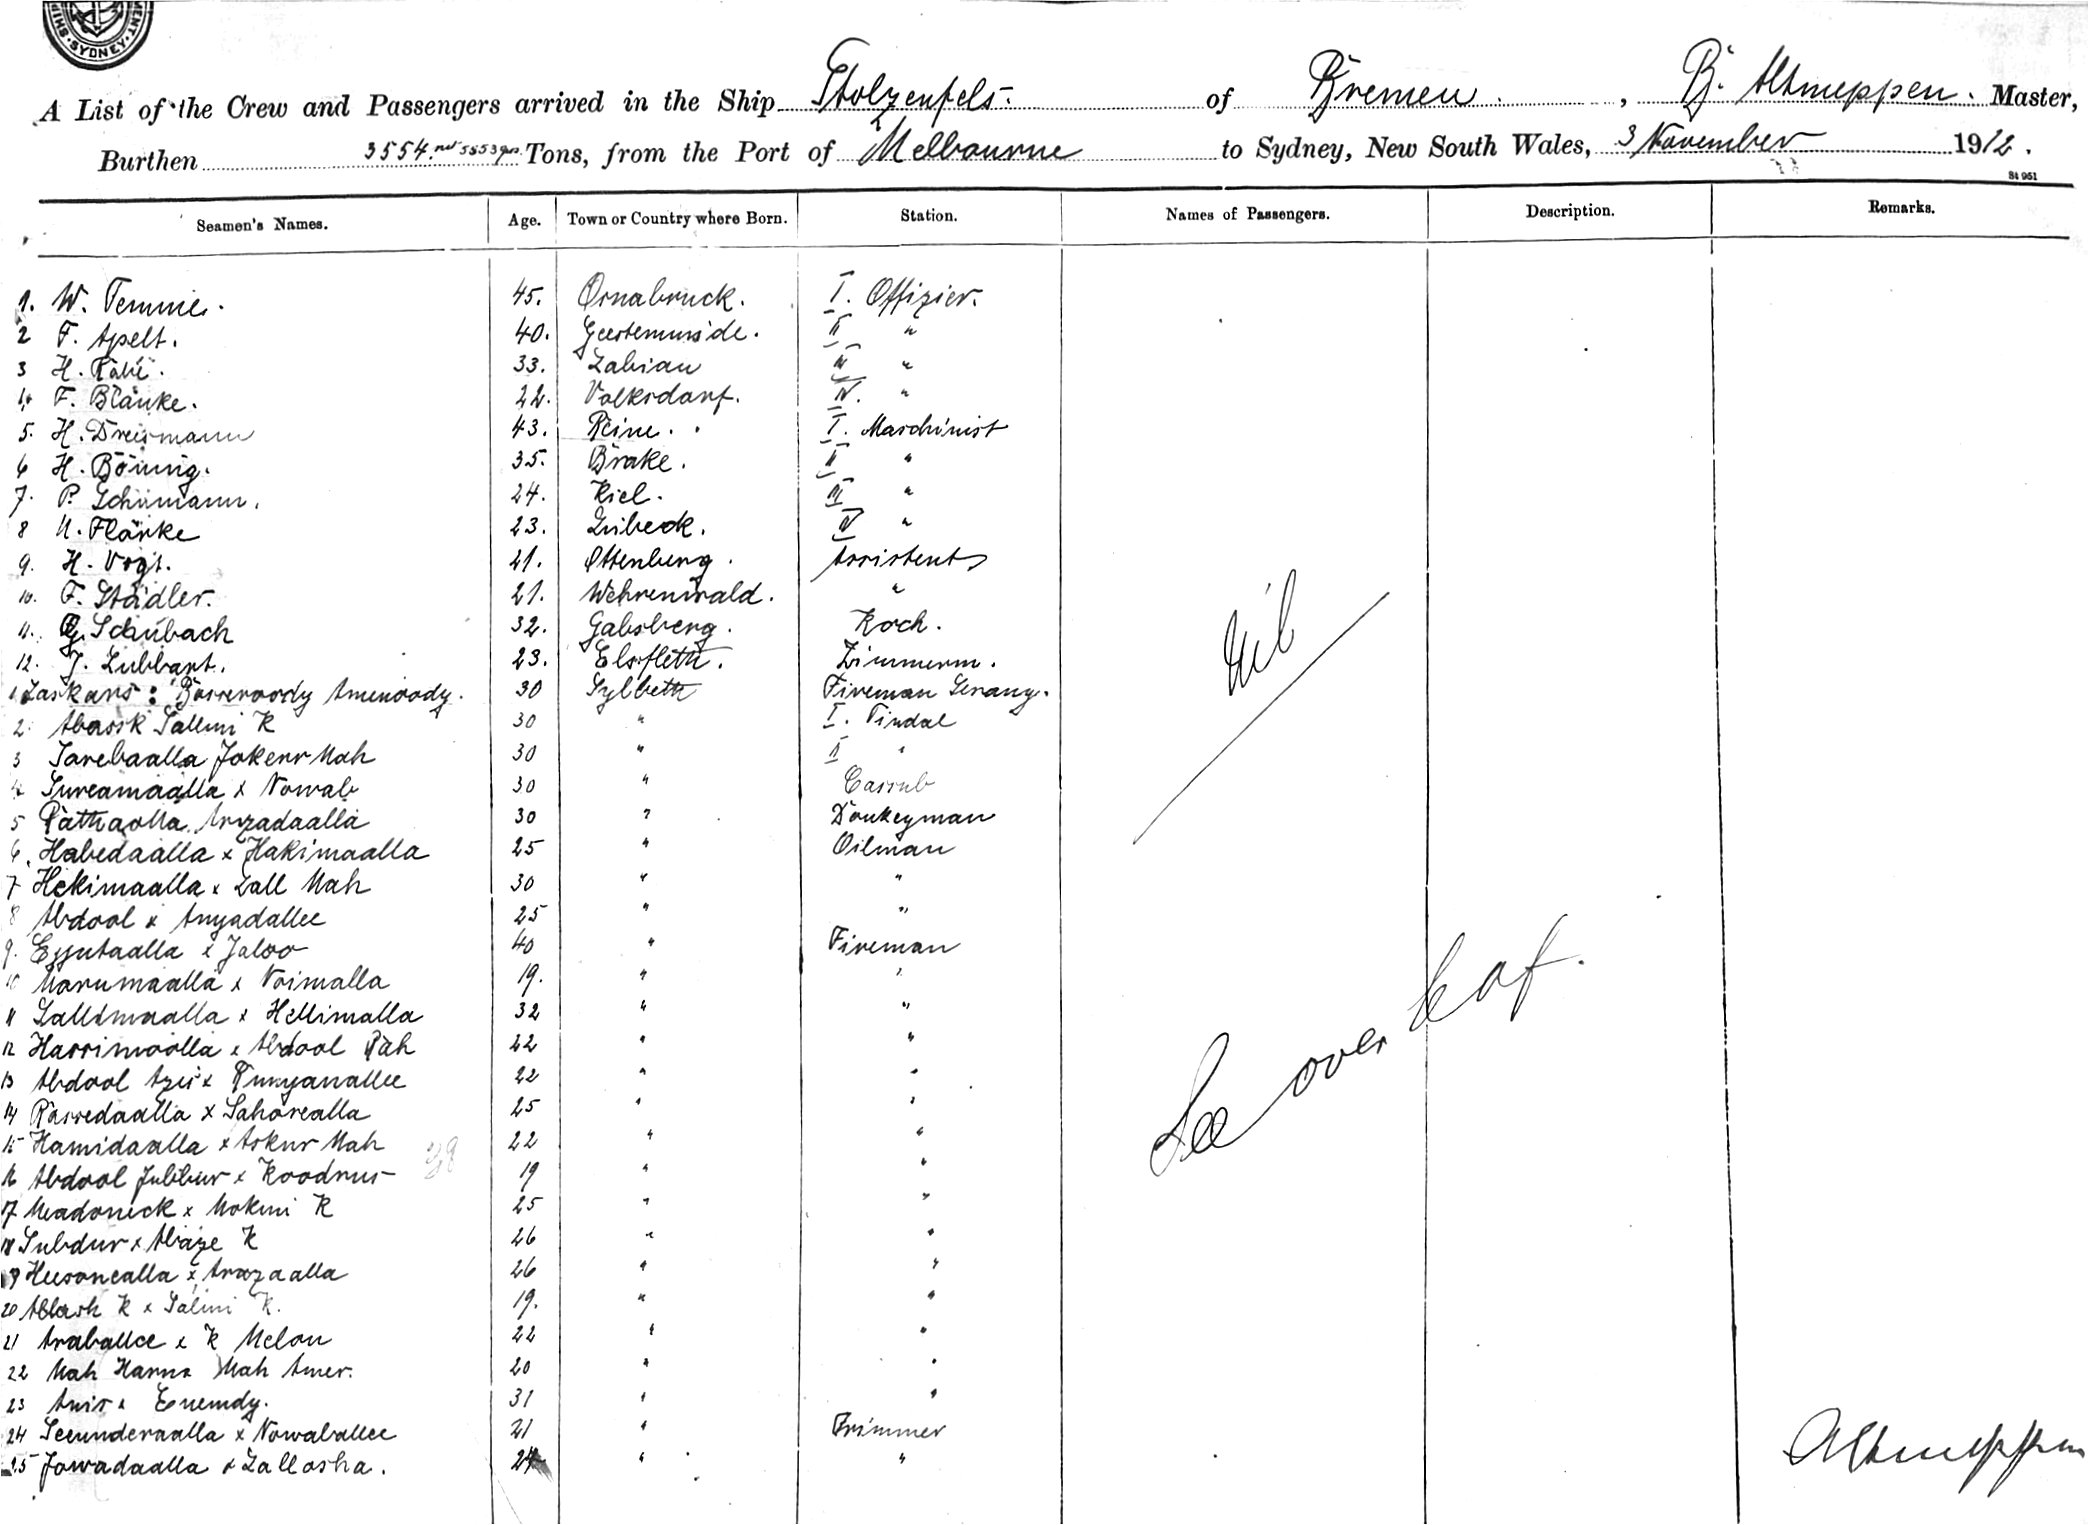 SYDNEY
A List of the Crew and Passengers arrived in the Ship Stolzenfels. of Bremen. , B. Altmeppen. Master,
Burthen 3554. net 5553 grs. Tons, from the Port of Melbourne to Sydney, New South Wales, 3 November 1912.
St 951
Seamen's Names. Age. Town or Country where Born. Station. Names of Passengers. Description. Remarks.
1. W. Temme. 45. Osnabruck. I. Offizier.
2 F. Apelt. 40. Geestemünde. II "
3 H. 33. Labian III "
4. F. Blänke. 22. Volksdorf. IV. "
5. H. Dreismann 43. Reine. I. Maschinist
6 H. Böning. 35. Brake. II "
7. P. Schümann. 24. Kiel. III "
8 Flänke 23. Lübeck. IV "
9. H. Vogt. 21. Ottenberg. Assistent
10. F. Städler. 21. Wehrenwald. "
11. G. Schübach 32. Gabsberg. Koch.
12. J. Lubbart. 23. Elsfleth. Zimmerm.
1 Laskars: Bossenoody Amenoody. 30 Sylbeth Fireman Serang.
2. Abassk Sallimi K 30 " I. Tindal
3 Sarebaalla Jokenr Mah 30 " II "
4 Sureamaalla x Nowab 30 " Cassub
5 Rathaolla Arzadaalla 30 " Donkeyman
6. Habedaalla x Hakimaalla 25 " Oilman
7 Hekimaalla x Lall Mah 30 " "
8 Abdool x Amjadallee 25 " "
9. x Jaloo 40 " Fireman
10 Marumaalla x Noimalla 19. " "
11 Sallimaalla x Hellimalla 32 " "
12 Hassimoolla x Abdool Rah 22 " "
13 Abdool Azis x 22 " "
14 Rassedaalla x Sahorealla 25 " "
15 Hamidaalla x Askur Mah 22 " "
16 Abdool Jubbur x Koodrus 19 " "
17 Meadoneck x Mokmi K 25 " "
18 Subdur x Abaze K 26 " "
19 Husonealla x Arazaalla 26 " "
20 Abbash K x Salimi K. 19. " "
21 Araballee x K Melon 22 " "
22 Mah Hanna Mah Amer. 20 " "
23 Anis x Enemdy. 31 " "
24 Secunderaalla x Nowaballee 21 " Trimmer
25 Jowadaalla x Lallosha. 24 " "
Nil
See over leaf.
Altmeppen